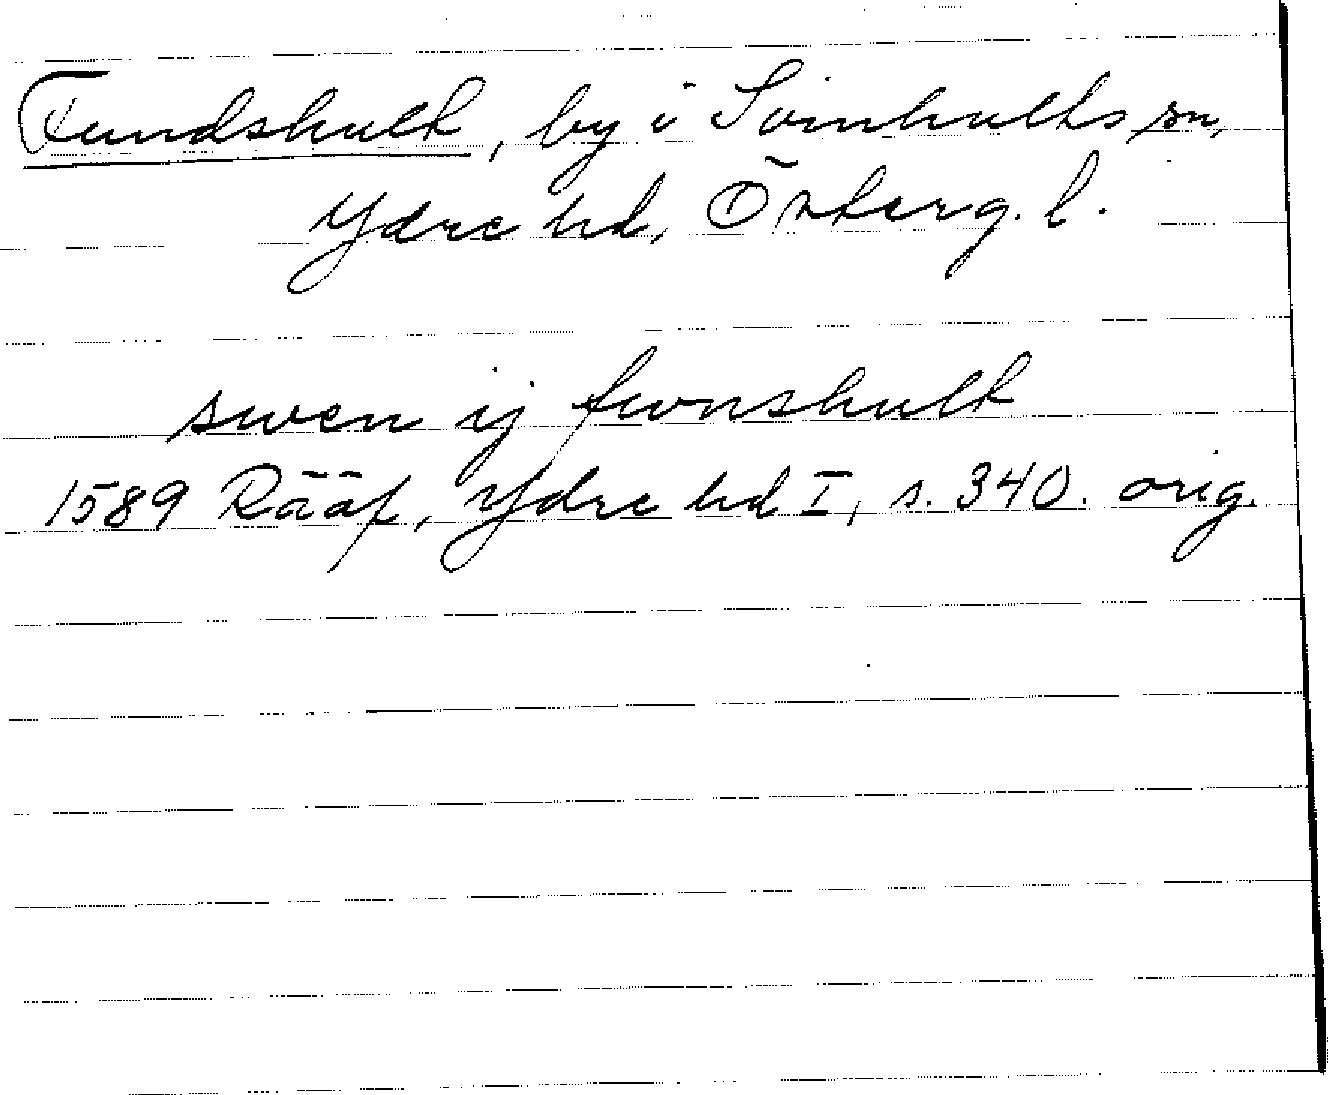 Fundshult, by i Svinhults sn,
Ydre hd, Österg. l.
swen ij fwnshult
1589 Rääf, Ydre hd I, s. 340. orig.